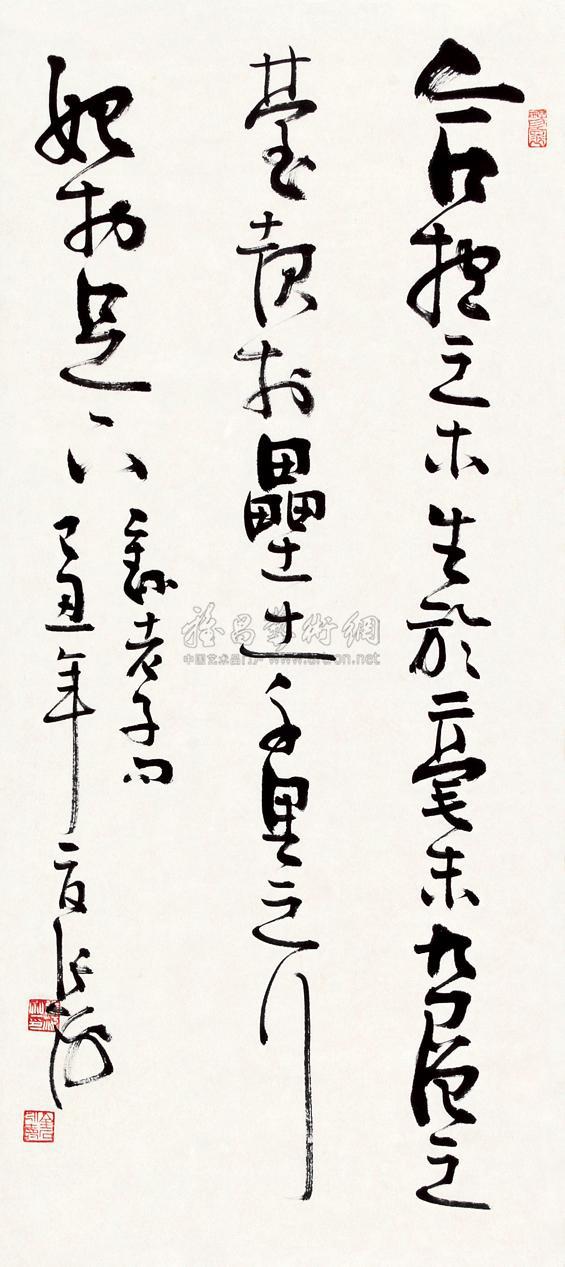 合抱之木生於毫末九層之
臺起於壘土千里之行
始於足下
錄老子句
己丑年夏張海
雅昌藝術網
中国艺术品门户 www.artron.net